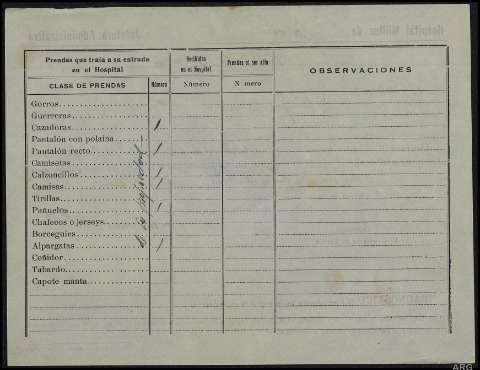 Prendas que traía a su entrada en el Hospital
Recibidas en el Hospital
Prendas al ser alta
OBSERVACIONES
CLASE DE PRENDAS
Número
Número
N mero
Gorros
Guerreras
Cazadoras /
Pantalón con polaina
Pantalón recto /
Camisetas
Calzoncillos /
Camisas /
Tirillas
Pañuelos /
Chalecos o jerseys
Borceguíes
Alpargatas /
Ceñidor
Tabardo
Capote manta
ARG